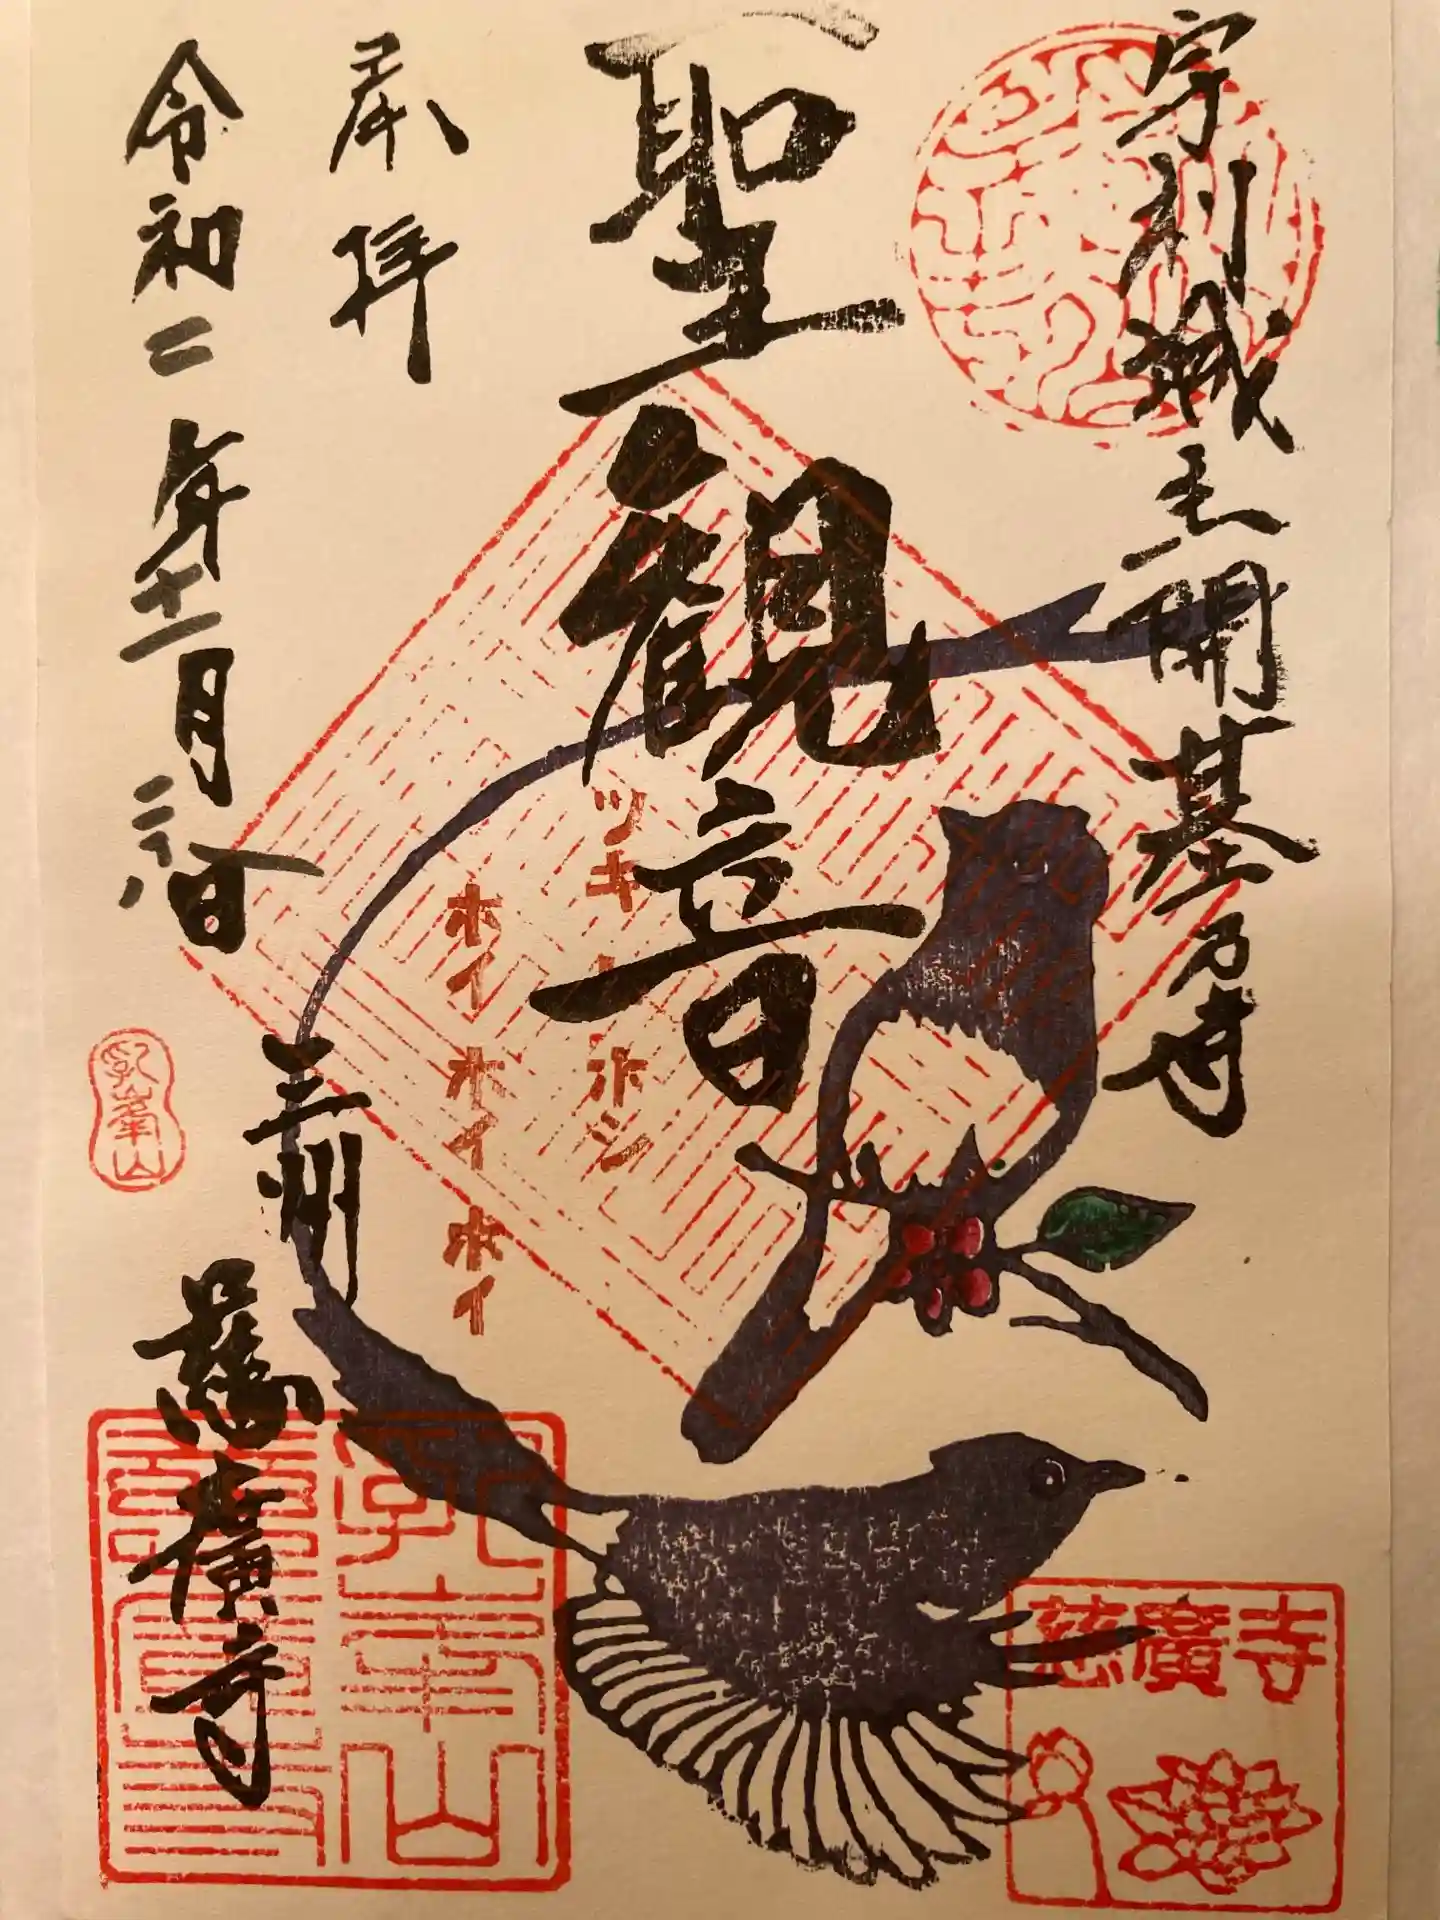 宇利城主開基乃寺
聖観音
ツキ ヒ ホシ
ホイ ホイ ホイ
奉拝
令和二年十一月二八日
三州
慈廣寺
乳峯山
乳峯山
慈廣寺